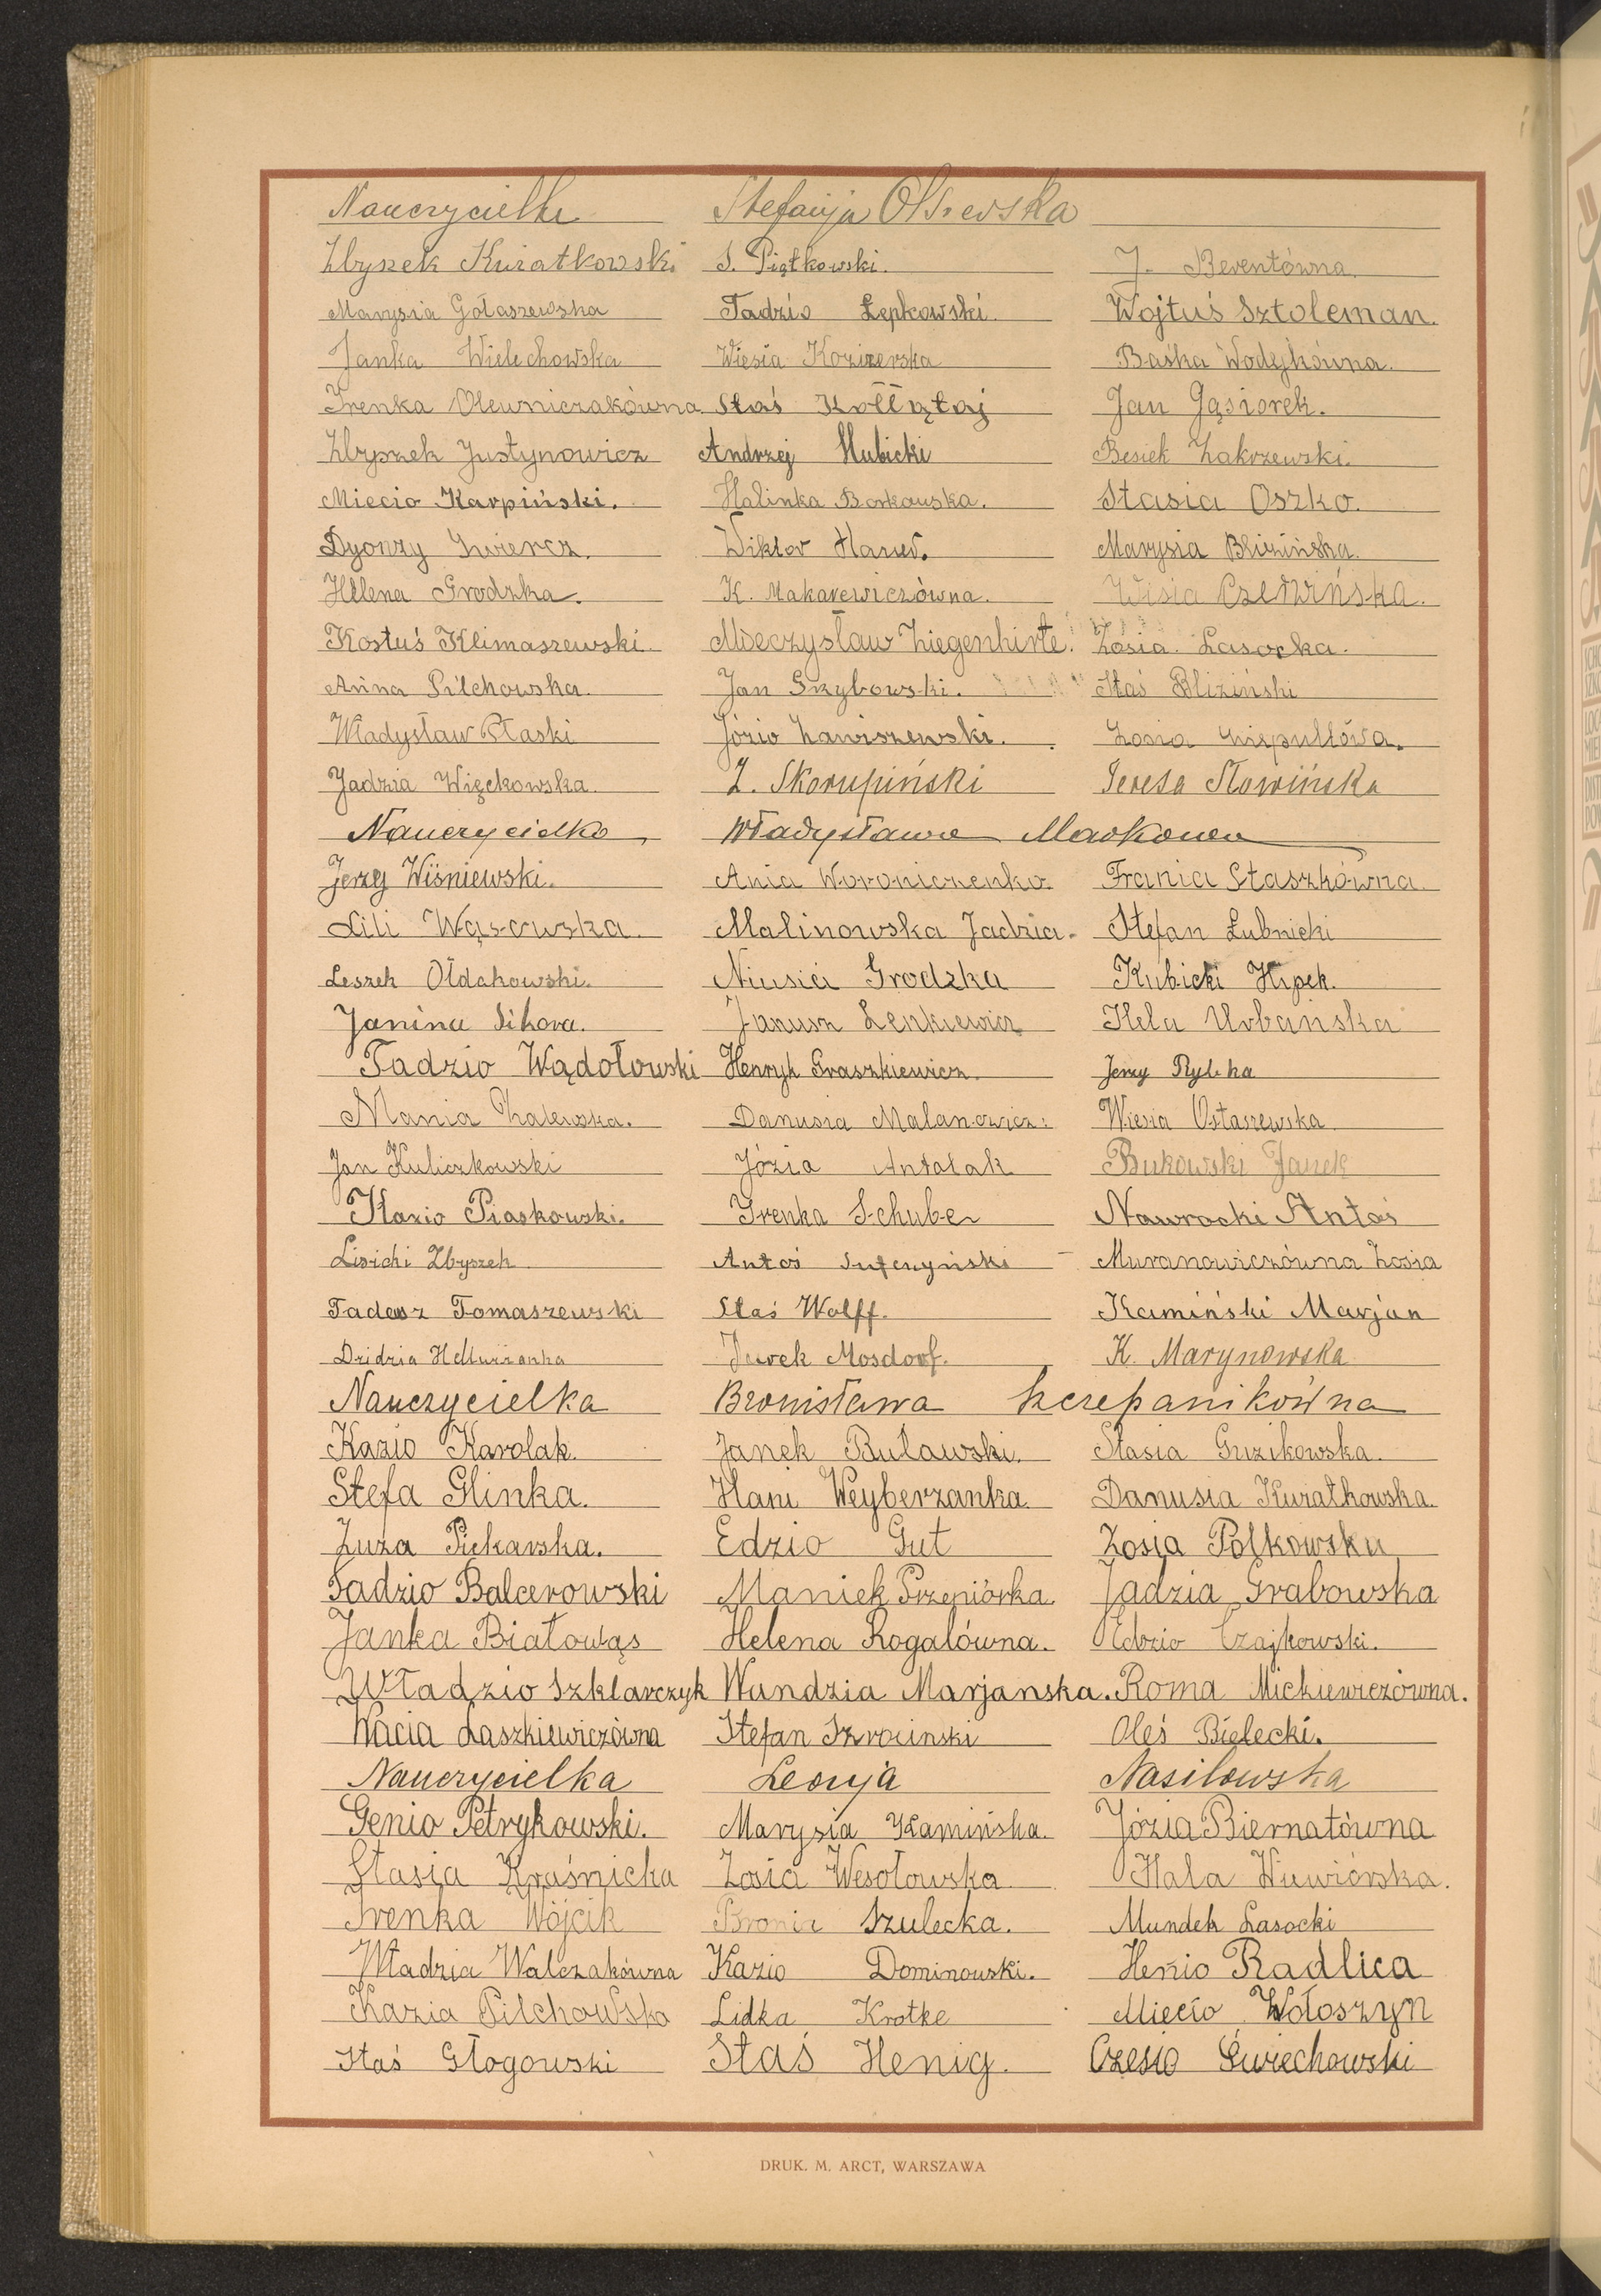 Nauczycielka Stefanja Olszewska
Zbyszek Kwiatkowski S. Piątkowski. J. Berentówna.
Marysia Gołaszewska Tadzio Łepkowski. Wojtuś Sztoleman.
Janka Wielechowska Wiesia Kozierska Baśka Wodyńkówna.
Irenka Olewniczakówna Staś Kołłątaj Jan Gąsiorek.
Zbyszek Justynowicz Andrzej Hubicki Besiek Zakrzewski.
Miecio Karpiński. Halinka Borkowska. Stasia Oszko.
Dyonzy Świercz. Wiktor Marysia Blizińska.
Helena Grodzka. K. Makarewiczówna. Wisia Czerwińska.
Kostuś Klimaszewski. Mieczysław Ziegenhirte. Zosia Lasocka.
Anna Pilchowska. Jan Grzybowski. Staś Bliziński
Władysław Płaski Józio Zawiszewski. Zosia
Jadzia Więckowska. Z. Skorupiński Teresa Słowińska
Nauczycielka Władysława Markowa
Jerzy Wiśniewski. Ania Woroniczenko. Frania Staszkówna.
Lili Wąsowska. Malinowska Jadzia. Stefan Łubnicki
Leszek Ołdakowski. Niusia Grodzka Kubicki Hipek.
Janina Sikora. Janusz Lenkiewicz Hela Urbańska
Tadzio Wądołowski Henryk Graszkiewicz. Jerzy Rybka
Mania Zalewska. Danusia Malanowicz. Wiesia Ostaszewska
Jan Kuliczkowski Józia Antolak Bukowski Janek
Kazio Piaskowski. Irenka Schuber Nawrocki Antoś
Lisicki Zbyszek Antoś Sufczyński Muranowiczówna Zosia
Tadeusz Tomaszewski Staś Wolff. Kamiński Marjan
Dzidzia Jurek Mosdorf. K. Marynowska
Nauczycielka Bronisława Szczepanikówna
Kazio Karolak. Janek Buławski. Stasia Guzikowska.
Stefa Glinka. Hani Weyberzanka. Danusia Kwiatkowska.
Zuza Piekarska. Edzio Gut Zosia Polkowska
Tadzio Balcerowski Maniek Przepiórka. Jadzia Grabowska
Janka Białowąs Helena Rogalówna. Edzio Czajkowski.
Władzio Szklarczyk Wandzia Marjanska. Roma Mickiewiczówna.
Wacia Laszkiewiczówna Stefan Oleś Bielecki.
Nauczycielka Leonja Nasiłowska
Genio Petrykowski. Marysia Kamińska. Józia Biernatówna
Stasia Kraśnicka Zosia Wesołowska Hala Wiewiórska.
Irenka Wójcik Bronia Szulecka. Mundek Lasocki
Władzia Walczakówna Kazio Dominowski. Henio Radlica
Kazia Pilchowska Lidka Krotke Miecio Wołoszyn
Staś Głogowski Staś Henig. Czesio Świechowski
DRUK. M. ARCT, WARSZAWA